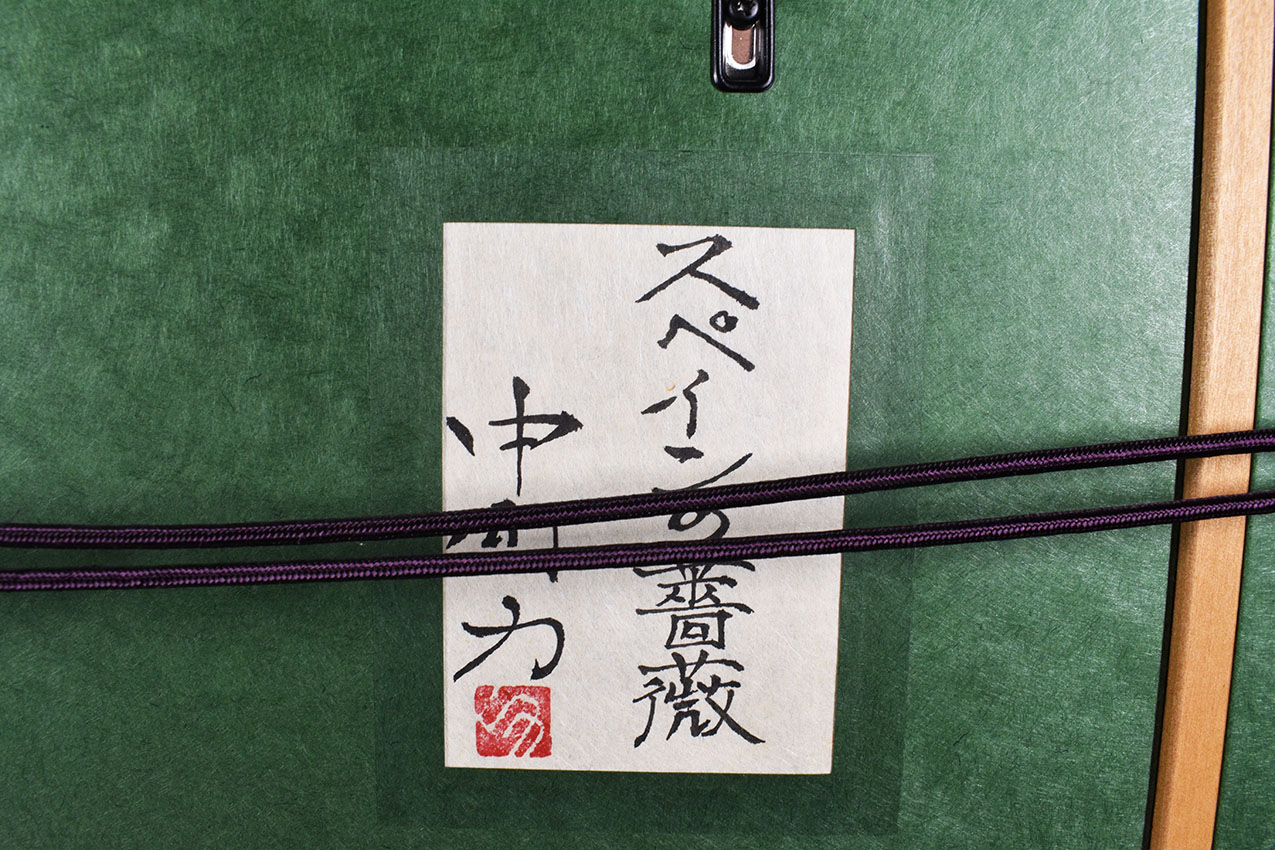 スペインの薔薇
中
力